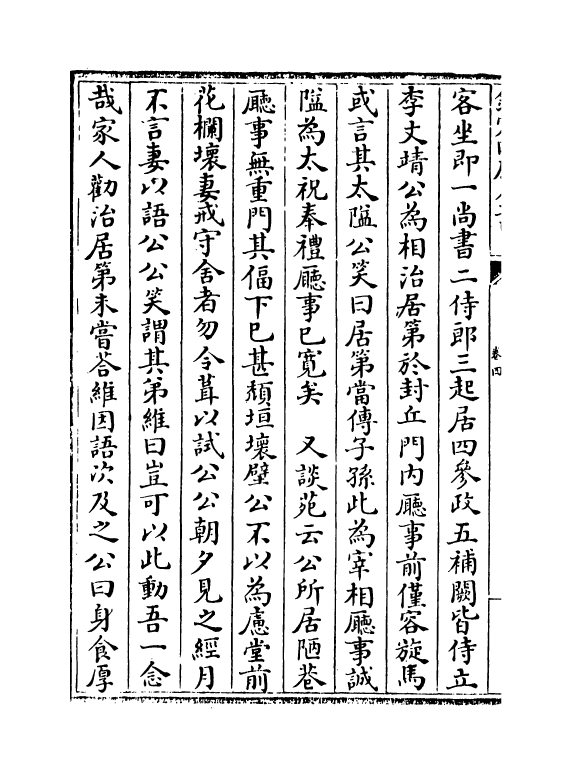 客坐即一尚書二侍郎三起居四參政五補闕皆侍立
李丈靖公為相治居第於封丘門内廳事前僅容旋馬
或言其太隘公笑曰居第當傳子孫此為宰相廳事誠
隘為太祝奉禮廳事已寛矣　又談苑云公所居陋巷
廳事無重門其偪下已甚頽垣壞壁公不以為慮堂前
花欄壞妻戒守舍者勿令葺以試公公朝夕見之經月
不言妻以語公公笑謂其弟維曰豈可以此動吾一念
哉家人勸治居第未嘗荅維因語次及之公曰身食厚
卷四